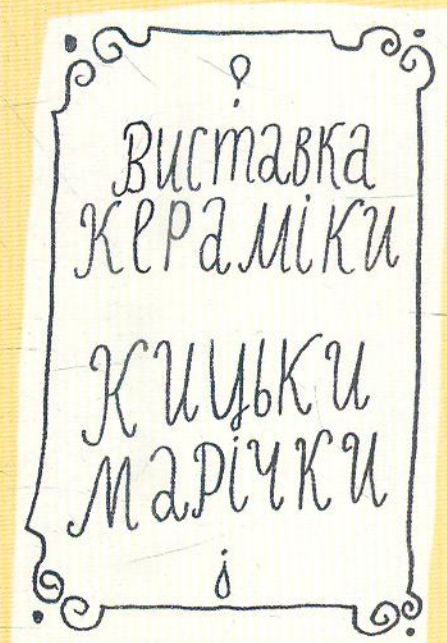 Виставка
кераміки
Кицьки
Марічки